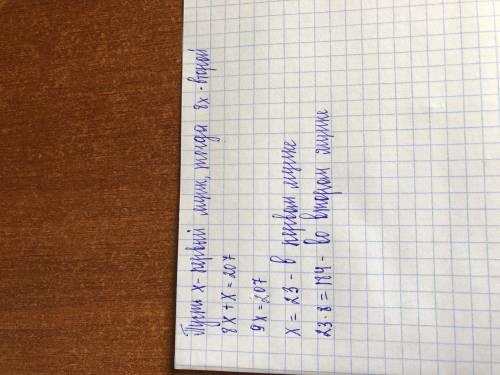 Пусть x - первый ящик, тогда 8x - второй
8x + x = 207
9x = 207
x = 23 - в первом ящике
23 · 8 = 184 - во втором ящике